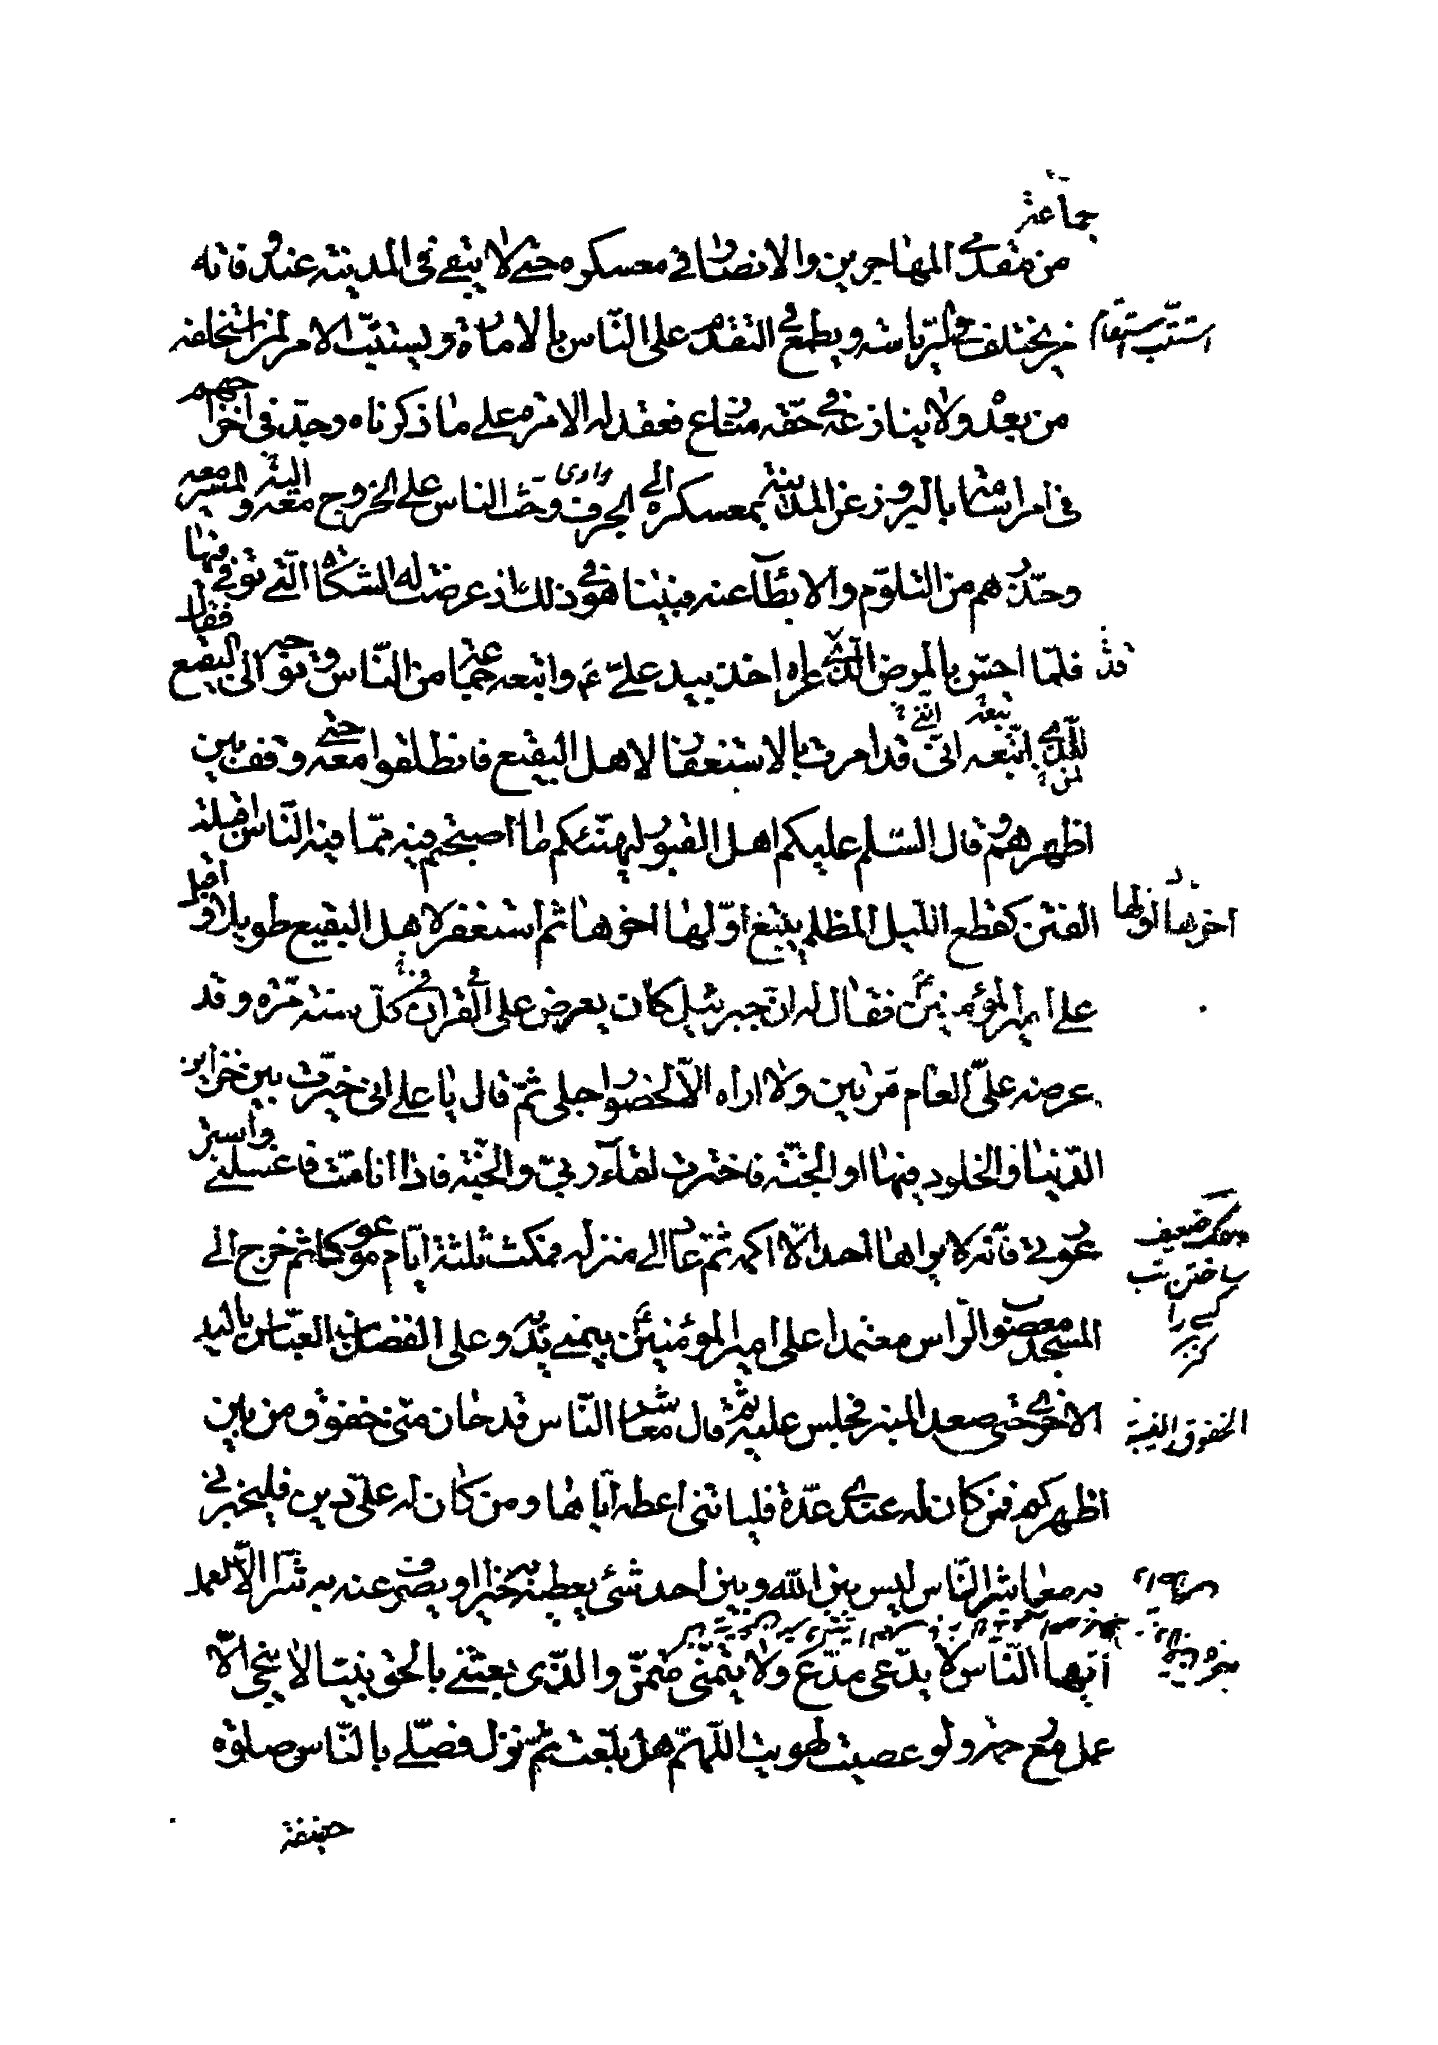 جماعة
من مقدمي المهاجرين والانصار في معسكره حتى لا يبقى في المدينة عند وفاته
من يختلف في الرياسة ويطمع في التقدم على الناس بالامارة ويستتب الامر لمن استخلفه
استتب استقام
من بعده ولا ينازعه في حقه منازع فعقد له الامرة على ما ذكرناه وجد في اخراجهم
في امر اسامة بالبروز عن المدينة بمعسكره الى الجرف وحث الناس على الخروج معه اليه والمسير معه
وادى
وحذرهم من التلوم والابطاء عنه فبينا هو في ذلك اذ عرضت له الشكاة التي توفي فيها
فلما احس بالمرض الذي عراه اخذ بيد علي ع واتبعه جماعة من الناس وتوجه الى البقيع فقال
للذي اتبعه انى قد امرت بالاستغفار لاهل البقيع فانطلقوا معه حتى وقف بين
لمن تبعه اننى
اظهرهم وقال السلم عليكم اهل القبور ليهنئكم ما اصبحتم فيه مما فيه الناس اقبلت
الفتن كقطع الليل المظلم يتبع اولها اخرها ثم استغفر لاهل البقيع طويلا واقبل
اخرها اولها
على امير المؤمنين فقال له ان جبرئيل كان يعرض على القران في كل سنة مرة وقد
عرضه علىّ العام مرتين ولا اراه الا لحضور اجلى ثم قال يا على انى خيرت بين خزاين
الدنيا والخلود فيها او الجنة فاخترت لقاء ربى والجنة فاذا انا مت فاغسلنى واستر
عورتى فانه لا يراها احد الا اكمه ثم عاد الى منزله فمكث ثلثة ايام موعوكا ثم خرج الى
وعك ضعيف ساختن تب كسى را
المسجد معصوب الراس معتمدا على امير المؤمنين بيمنى يديه وعلى الفضل بن العباس باليد
الاخرى حتى صعد المنبر فجلس عليه ثم قال معاشر الناس قد حان منى خفوق من بين
الخفوق الغيبة
اظهركم فمن كان له عندي عدة فلياتنى اعطه اياها ومن كان له على دين فليخبرنى
به معاشر الناس ليس بين الله وبين احد شئ يعطيه به خيرا او يصرف عنه به شرا الا العمل
ايها الناس لا يدعى مدع ولا يتمنى متمن والذى بعثنى بالحق نبيا لا ينجى الا
عمل مع رحمة ولو عصيت لهويت اللهم هل بلغت ثم نزل فصلى بالناس صلوة
خفيفة